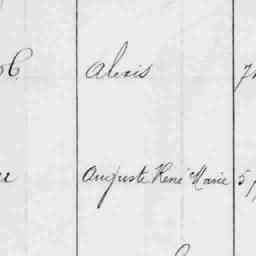 Alexis
Auguste René Marie 5